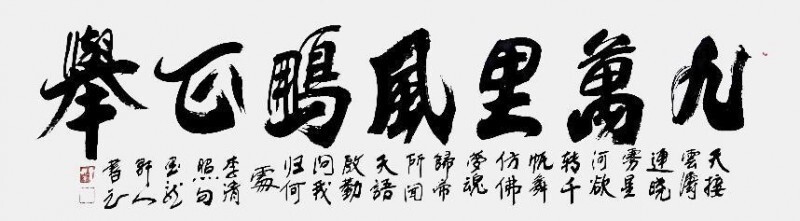 九萬里風鵬正舉
天接
雲濤
連曉
霧星
河欲
轉千
帆舞
仿佛
夢魂
歸帝
所聞
天語
殷勤
问我
归何
處
李清
照句
野人
書